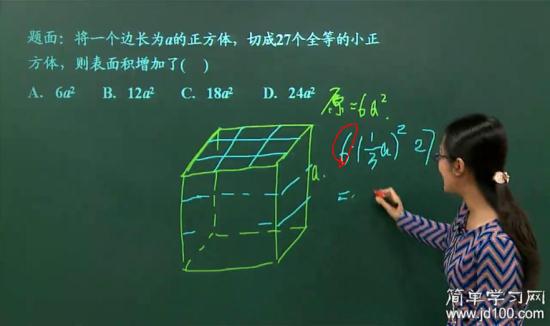 题面：将一个边长为a的正方体，切成27个全等的小正
方体，则表面积增加了（ ）
A. 6a² B. 12a² C. 18a² D. 24a²
原=6a².
6(1/3 a)² 27
a.
=
简单学习网
www.jd100.com